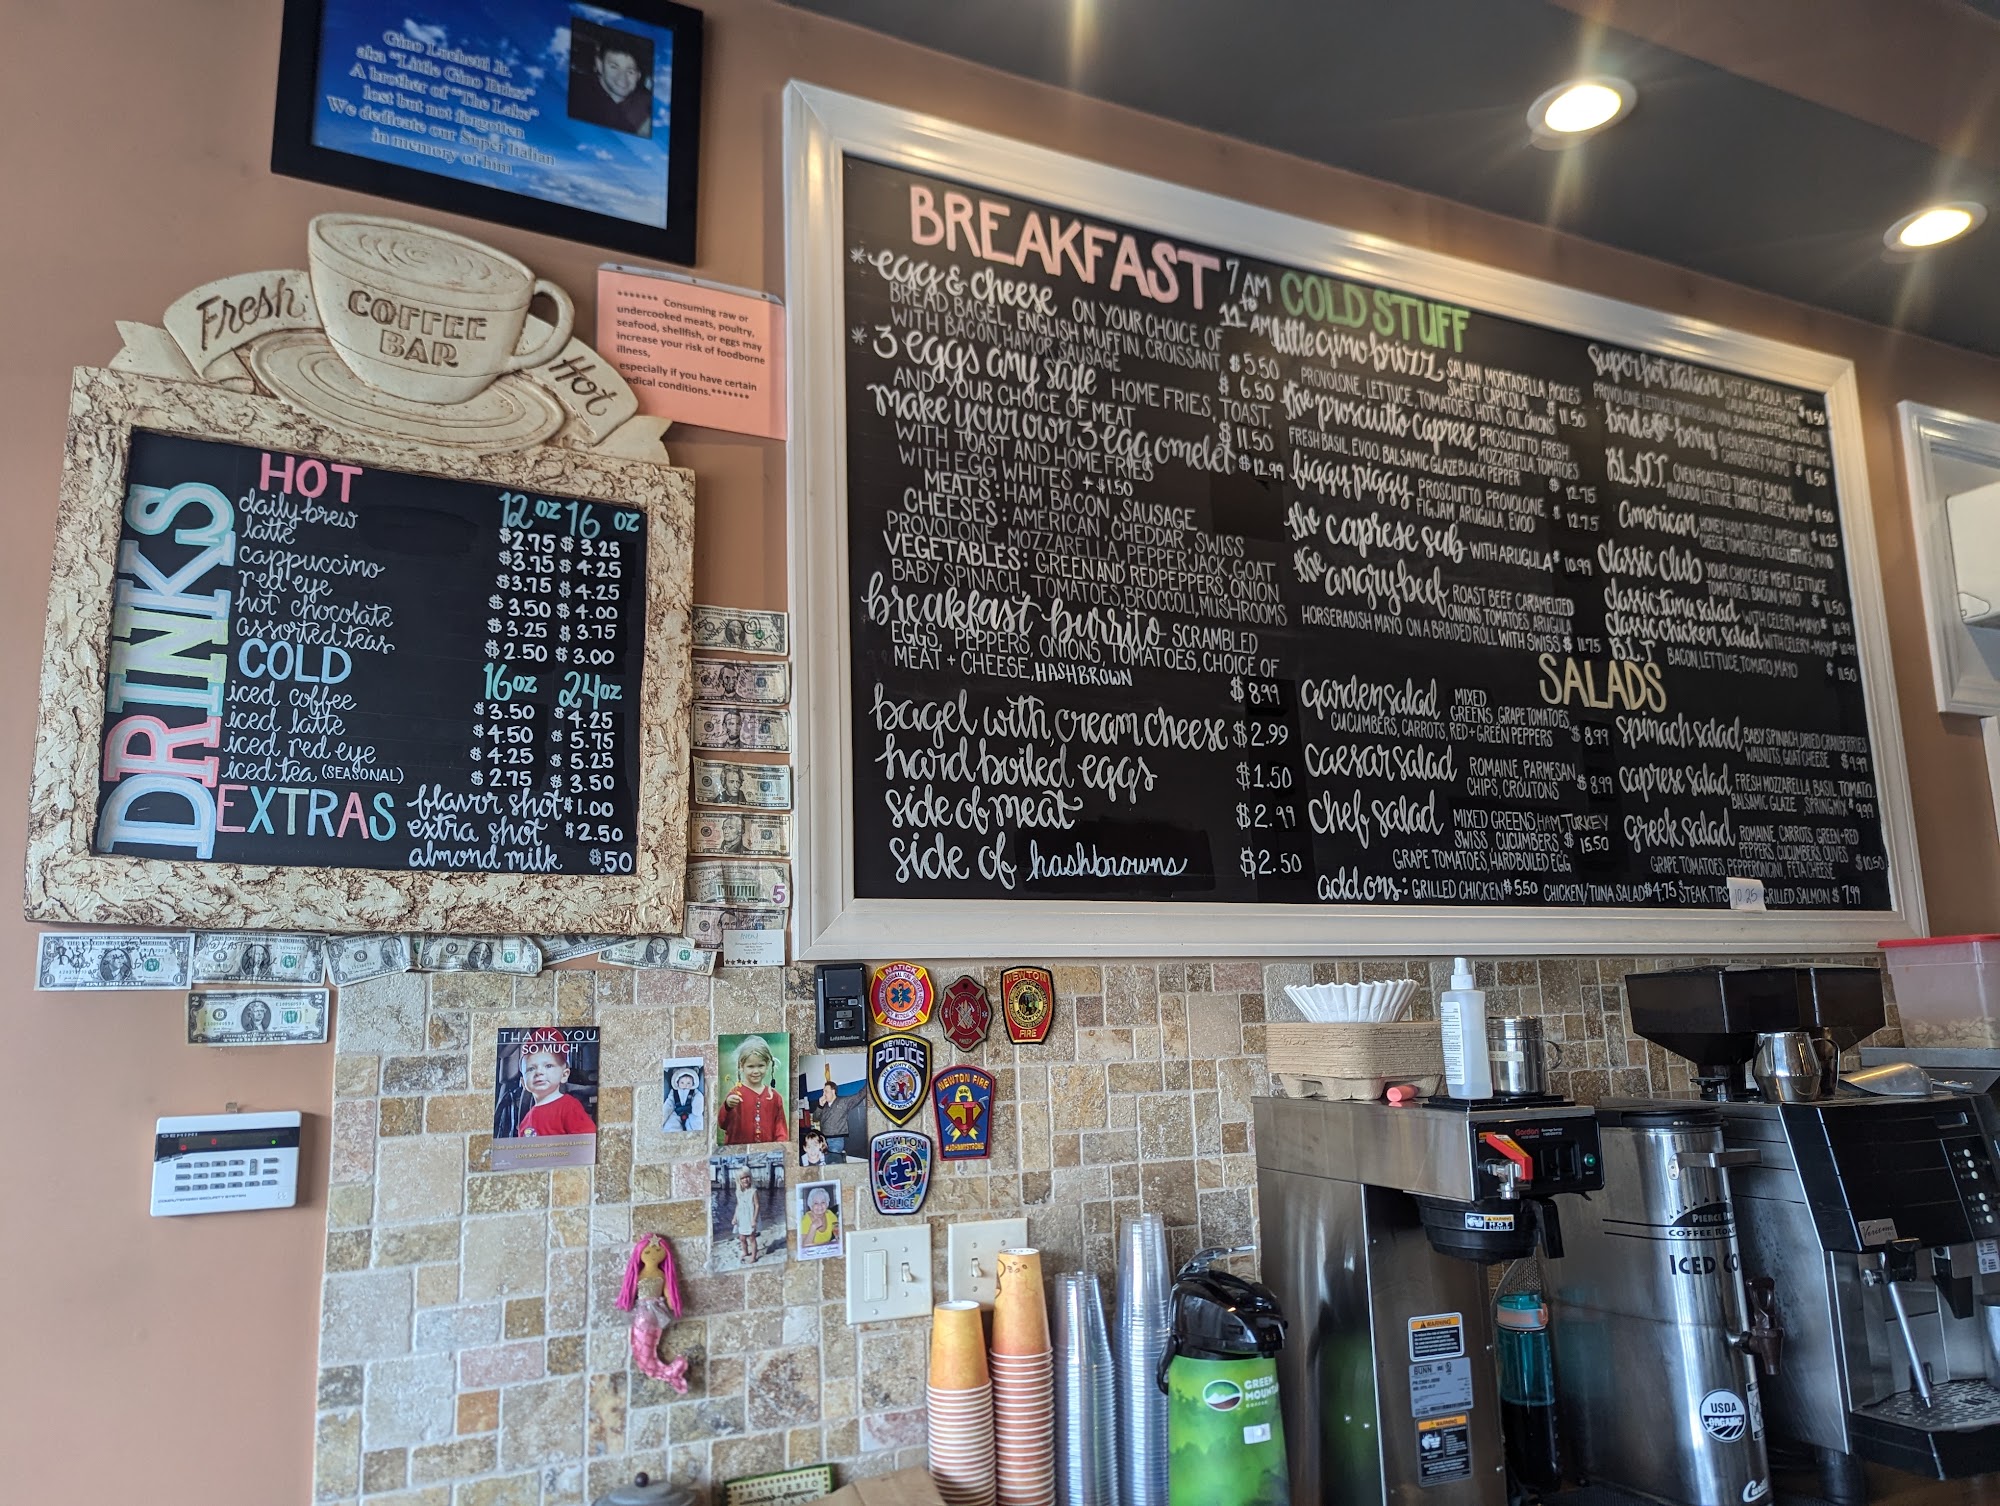 Gino Luchetti Jr.
aka "Little Gino Brizz"
A brother of "The Lake"
lost but not forgotten
We dedicate our Super Italian
in memory of him
Fresh
COFFEE
BAR
Hot
******* Consuming raw or
undercooked meats, poultry,
seafood, shellfish, or eggs may
increase your risk of foodborne
illness,
especially if you have certain
medical conditions.*******
DRINKS
HOT 12 oz 16 oz
daily brew $2.75 $3.25
latte $3.75 $4.25
cappuccino $3.75 $4.25
red eye $3.50 $4.00
hot chocolate $3.25 $3.75
assorted teas $2.50 $3.00
COLD 16oz 24oz
iced coffee $3.50 $4.25
iced latte $4.50 $5.75
iced red eye $4.25 $5.25
iced tea (SEASONAL) $2.75 $3.50
EXTRAS flavor shot $1.00
extra shot $2.50
almond milk $.50
BREAKFAST 7 AM to 11 AM
*egg & cheese ON YOUR CHOICE OF
BREAD, BAGEL, ENGLISH MUFFIN, CROISSANT $5.50
WITH BACON, HAM OR SAUSAGE $6.50
* 3 eggs any style HOME FRIES, TOAST,
AND YOUR CHOICE OF MEAT $11.50
make your own 3 egg omelet $12.99
WITH TOAST AND HOME FRIES
WITH EGG WHITES + $1.50
MEATS: HAM, BACON, SAUSAGE
CHEESES: AMERICAN, CHEDDAR, SWISS
PROVOLONE, MOZZARELLA, PEPPER JACK, GOAT
VEGETABLES: GREEN AND RED PEPPERS, ONION
BABY SPINACH, TOMATOES, BROCCOLI, MUSHROOMS
breakfast burrito SCRAMBLED
EGGS, PEPPERS, ONIONS, TOMATOES, CHOICE OF
MEAT + CHEESE, HASHBROWN $8.99
bagel with cream cheese $2.99
hard boiled eggs $1.50
side of meat $2.99
side of hashbrowns $2.50
COLD STUFF
little gino brizz SALAMI MORTADELLA PICKLES
SWEET CAPICOLA
PROVOLONE, LETTUCE, TOMATOES, HOTS, OIL, ONIONS $11.50
the prosciutto caprese PROSCIUTTO FRESH
MOZZARELLA TOMATOES
FRESH BASIL, EVOO BALSAMIC GLAZE BLACK PEPPER $12.75
figgy piggy PROSCIUTTO PROVOLONE,
FIG JAM ARUGULA, EVOO $12.75
the caprese sub WITH ARUGULA $10.99
the angry beef ROAST BEEF CARAMELIZED
ONIONS TOMATOES ARUGULA
HORSERADISH MAYO ON A BRAIDED ROLL WITH SWISS $11.75
super hot italian HOT CAPICOLA, HOT
SALAMI, PEPPERONI $11.50
PROVOLONE, LETTUCE, TOMATOES, ONION, BANANA PEPPERS, HOTS, OIL
bird & the berry OVEN ROASTED TURKEY, STUFFING
CRANBERRY, MAYO $11.50
B.L.O.T. OVEN ROASTED TURKEY, BACON,
AVOCADO, LETTUCE, TOMATO, CHEESE, MAYO $11.50
american HONEY HAM, TURKEY, AMERICAN $11.25
CHEESE, TOMATOES, PICKLES, LETTUCE, MAYO
classic club YOUR CHOICE OF MEAT LETTUCE
TOMATOES, BACON, MAYO $11.50
classic tuna salad WITH CELERY + MAYO $10.99
classic chicken salad WITH CELERY + MAYO $10.99
B.L.T BACON, LETTUCE, TOMATO, MAYO $11.50
SALADS
garden salad MIXED
GREENS, GRAPE TOMATOES,
CUCUMBERS, CARROTS, RED + GREEN PEPPERS $8.99
caesar salad ROMAINE, PARMESAN
CHIPS, CROUTONS $8.99
chef salad MIXED GREENS, HAM, TURKEY
SWISS, CUCUMBERS $15.50
GRAPE TOMATOES, HARDBOILED EGG
spinach salad BABY SPINACH, DRIED CRANBERRIES
WALNUTS, GOAT CHEESE $9.99
caprese salad FRESH MOZZARELLA BASIL TOMATO
BALSAMIC, GLAZE, SPRING MIX $9.99
greek salad ROMAINE, CARROTS, GREEN + RED
PEPPERS, CUCUMBERS, OLIVES
GRAPE TOMATOES, PEPPERONCINI, FETA CHEESE $10.50
add ons: GRILLED CHICKEN $5.50 CHICKEN/TUNA SALAD $4.75 STEAK TIPS 10.25 GRILLED SALMON $7.99
ONE DOLLAR
TWO DOLLARS
THANK YOU
SO MUCH
NATICK
PARAMEDIC
NEWTON
FIRE
WEYMOUTH
POLICE
NEWTON FIRE
NEWTON
POLICE
GEMINI
GREEN
MOUNTAIN
WARNING
BUNN
WARNING
COFFEE
ICED
USDA
ORGANIC
PROVERBIO